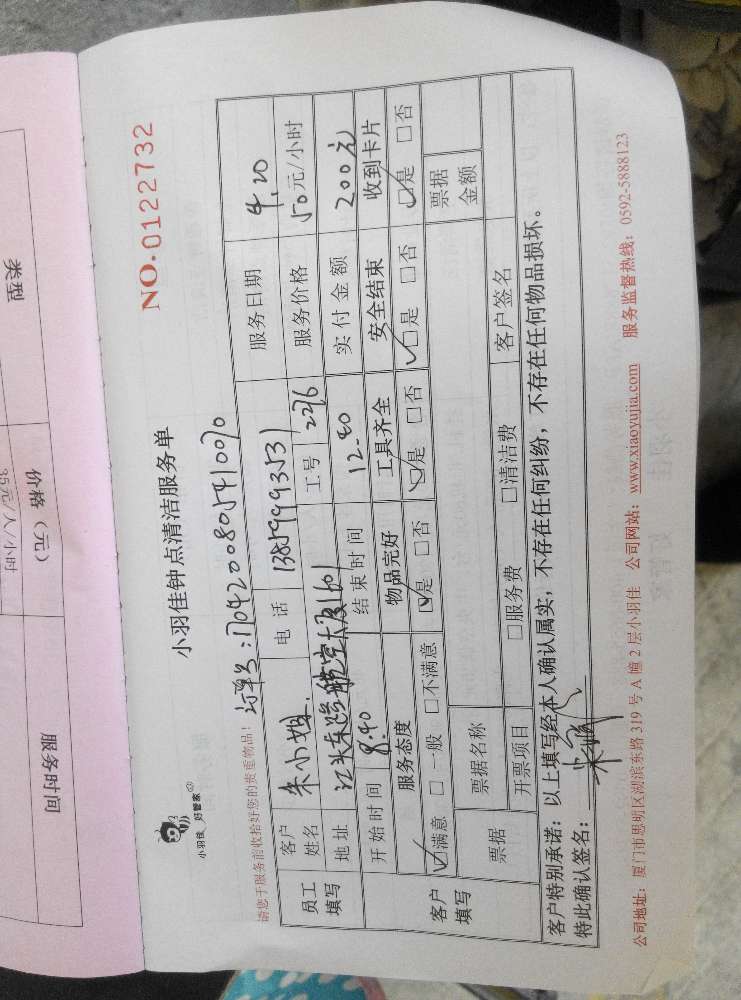 类型
价格（元）
服务时间
35元/人/小时
NO.0122732
小羽佳钟点清洁服务单
小羽佳 好管家
请您于服务前收拾好您的贵重物品！ 订单号：170420080541090
员工填写 客户姓名 朱小姐 电话 13859993531 服务日期 4.20
地址 航空大厦1601 工号 2276 服务价格 50元/小时
开始时间 8.40 结束时间 12.40 实付金额 200元
客户填写 服务态度 物品完好 工具齐全 安全结束 收到卡片
☑满意 □一般 □不满意 ☑是 □否 ☑是 □否 ☑是 □否 ☑是 □否
票据 票据名称 票据金额
开票项目 □服务费 □清洁费 客户签名
客户特别承诺：以上填写经本人确认属实，不存在任何纠纷，不存在任何物品损坏。
特此确认签名：
公司地址：厦门市思明区湖滨东路319号A幢2层小羽佳 公司网站：www.xiaoyujia.com 服务监督热线：0592-5888123